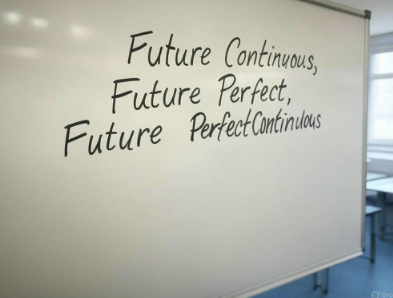 Future Continuous,
Future Perfect,
Future PerfectContinuous